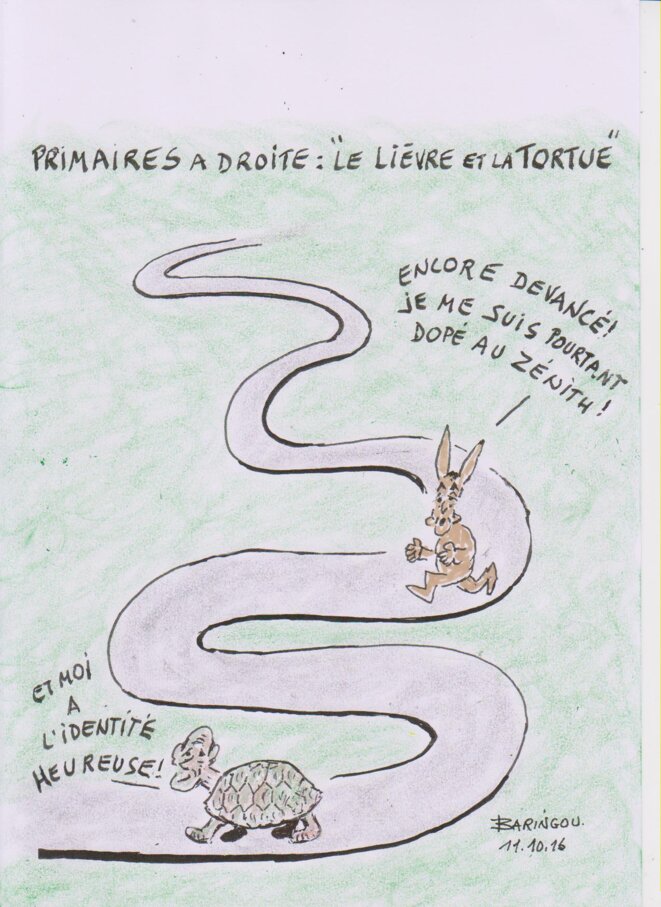 PRIMAIRES A DROITE : "LE LIÈVRE ET LA TORTUE"
ENCORE DEVANCÉ!
JE ME SUIS POURTANT
DOPÉ AU ZÉNITH !
ET MOI
A
L'IDENTITÉ
HEUREUSE!
BARINGOU.
11.10.16